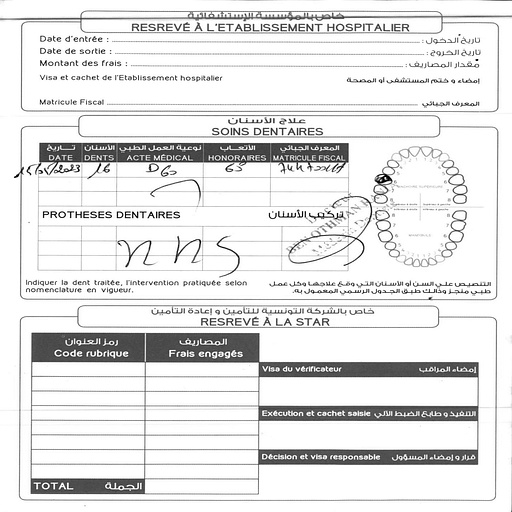 خاص بالمؤسسة الإستشفائية
RESREVÉ À L'ETABLISSEMENT HOSPITALIER
Date d'entrée : تاريخ الدخول :
Date de sortie : تاريخ الخروج :
Montant des frais : مقدار المصاريف :
Visa et cachet de l'Etablissement hospitalier إمضاء و ختم المستشفى أو المصحة
Matricule Fiscal المعرف الجبائي
علاج الأسنان
SOINS DENTAIRES
تاريخ الأسنان نوعية العمل الطبي الأتعاب المعرف الجبائي
DATE DENTS ACTE MÉDICAL HONORAIRES MATRICULE FISCAL
16 D60 65
PROTHESES DENTAIRES تركيب الأسنان
Indiquer la dent traitée, l'intervention pratiquée selon
nomenclature en vigueur.
التنصيص على السن أو الأسنان التي وقع علاجها وكل عمل
طبي منجز وذالك طبق الجدول الرسمي المعمول به.
خاص بالشركة التونسية للتأمين و إعادة التأمين
RESREVÉ À LA STAR
رمز العنوان المصاريف
Code rubrique Frais engagés
Visa du vérificateur إمضاء المراقب
Exécution et cachet saisie التنفيذ و طابع الضبط الآلي
Décision et visa responsable قرار و إمضاء المسؤول
TOTAL الجملة